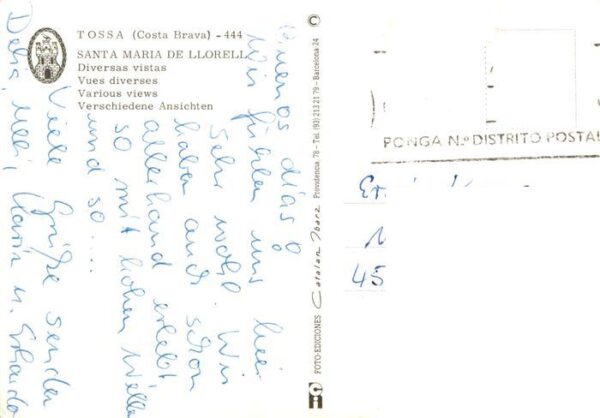 TOSSA (Costa Brava) - 444
SANTA MARIA DE LLORELL
Diversas vistas
Vues diverses
Various views
Verschiedene Ansichten
Buenos días!
Wir fühlen uns hier
sehr wohl. Wir
haben auch schon
allerhand erlebt
so mit hohen Welle
und so....
Viele Grüße senden
Delia, Karin u.
©
FOTO-EDICIONES Catalan Ibarz Providencia, 78 - Tel. (93) 213 21 79 - Barcelona-24
PONGA N.º DISTRITO POSTAL
45